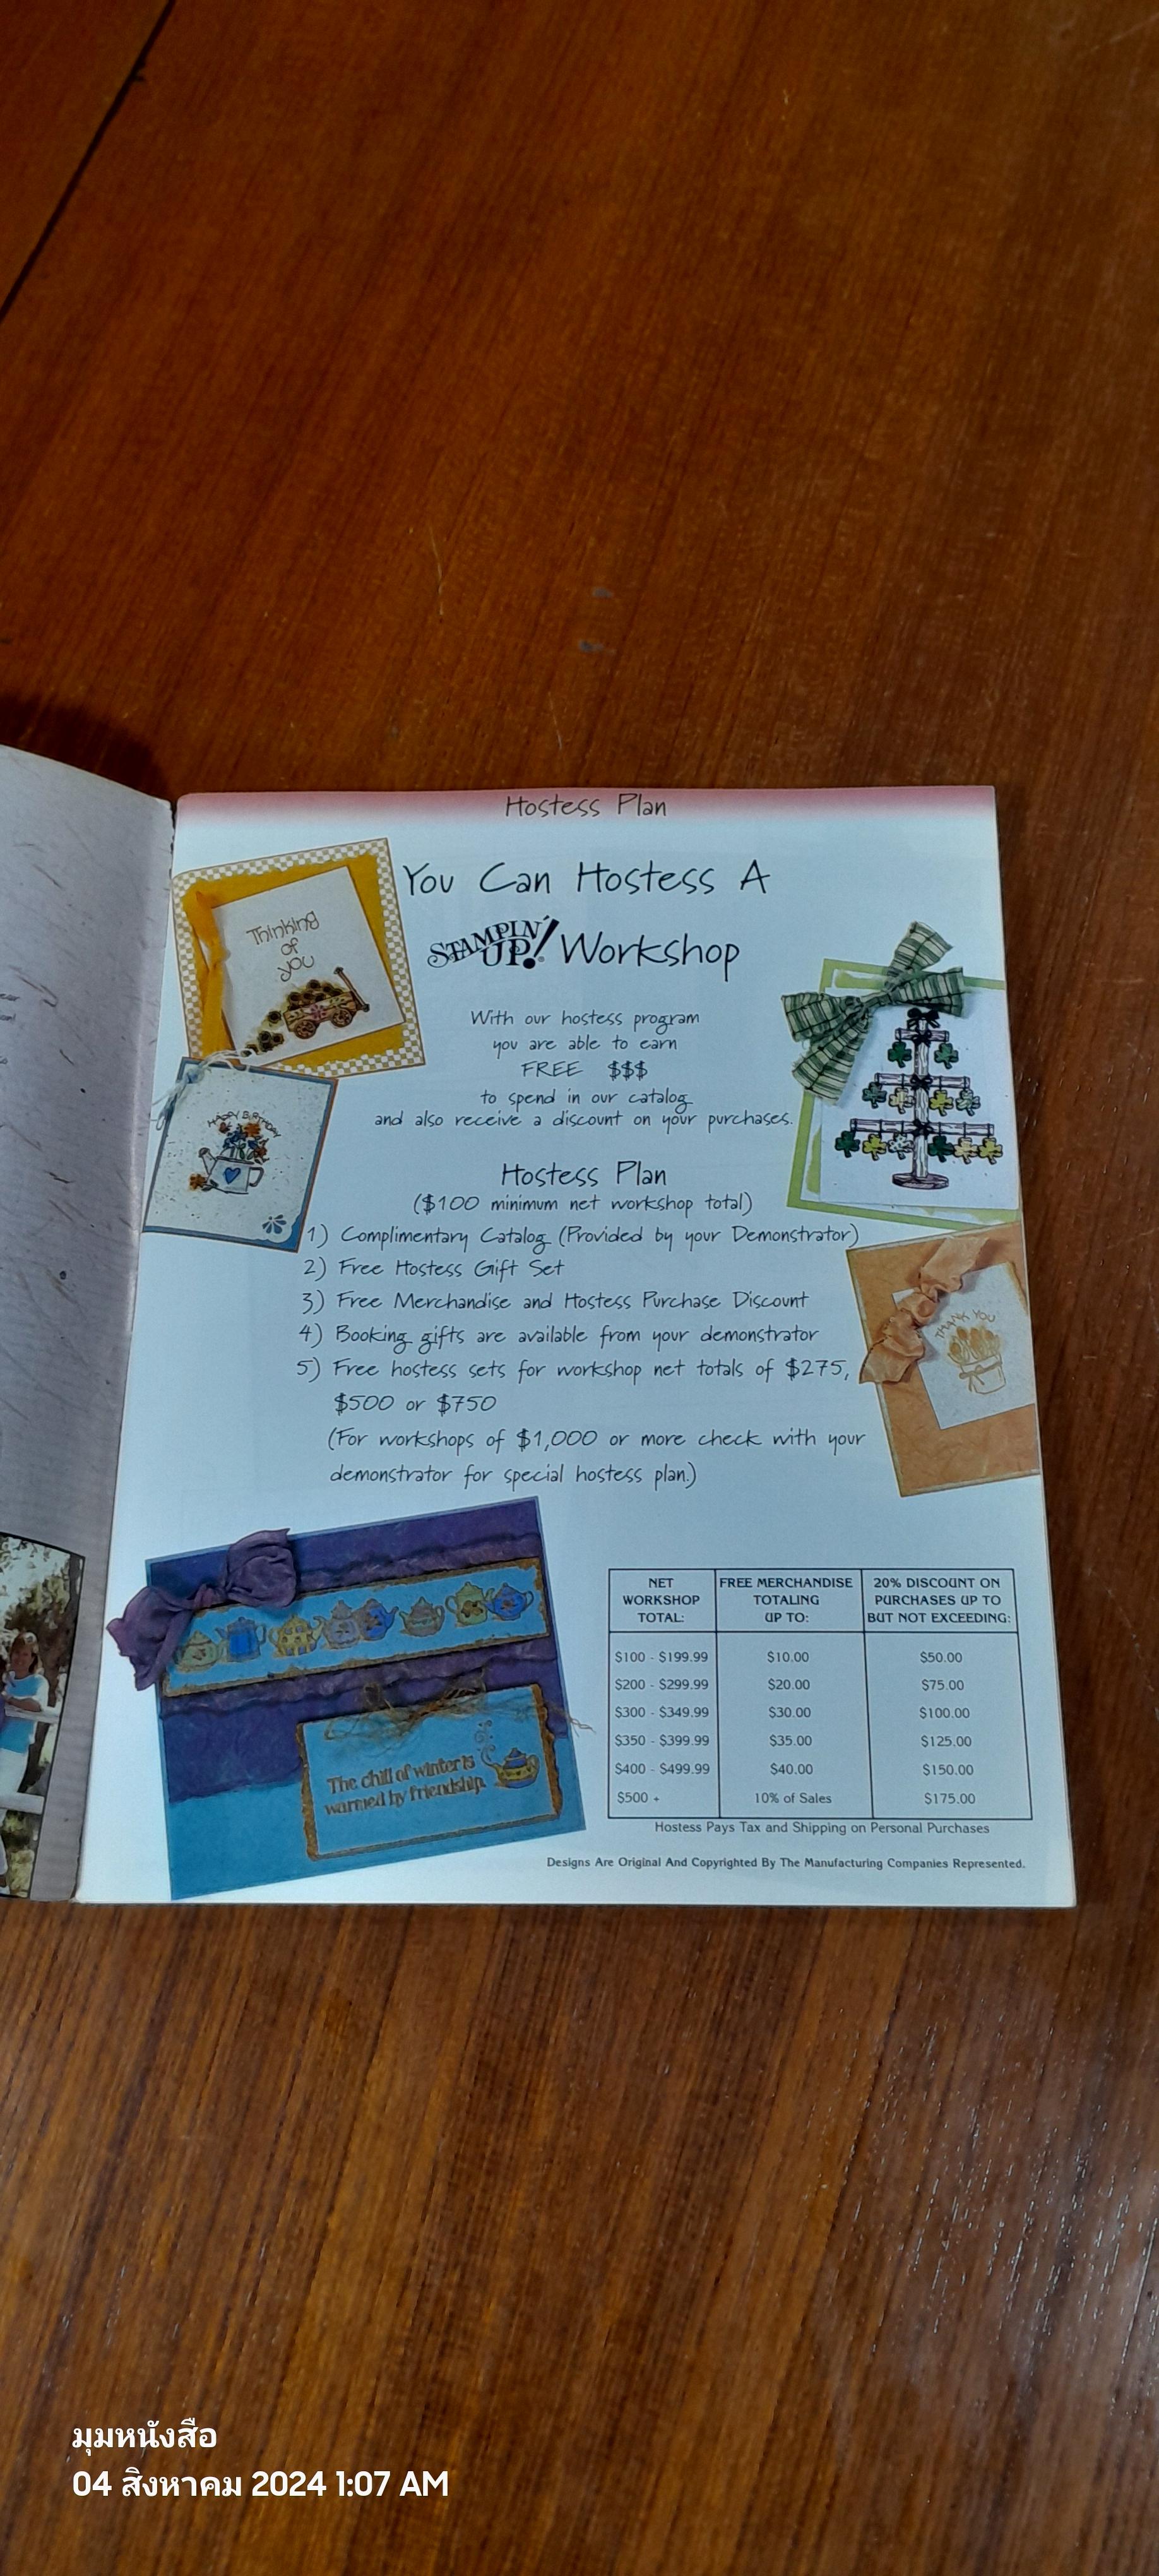 Hostess Plan
You Can Hostess A
STAMPIN' UP! Workshop
With our hostess program
you are able to earn
FREE $$$
to spend in our catalog
and also receive a discount on your purchases.
Hostess Plan
($100 minimum net workshop total)
1) Complimentary Catalog (Provided by your Demonstrator)
2) Free Hostess Gift Set
3) Free Merchandise and Hostess Purchase Discount
4) Booking gifts are available from your demonstrator
5) Free hostess sets for workshop net totals of $275,
$500 or $750
(For workshops of $1,000 or more check with your
demonstrator for special hostess plan.)
Thinking
of
you
HAPPY BIRTHDAY
THANK YOU
The chill of winter is
warmed by friendship.
NET WORKSHOP TOTAL: FREE MERCHANDISE TOTALING UP TO: 20% DISCOUNT ON PURCHASES UP TO BUT NOT EXCEEDING:
$100 - $199.99 $10.00 $50.00
$200 - $299.99 $20.00 $75.00
$300 - $349.99 $30.00 $100.00
$350 - $399.99 $35.00 $125.00
$400 - $499.99 $40.00 $150.00
$500 + 10% of Sales $175.00
Hostess Pays Tax and Shipping on Personal Purchases
Designs Are Original And Copyrighted By The Manufacturing Companies Represented.
มุมหนังสือ
04 สิงหาคม 2024 1:07 AM